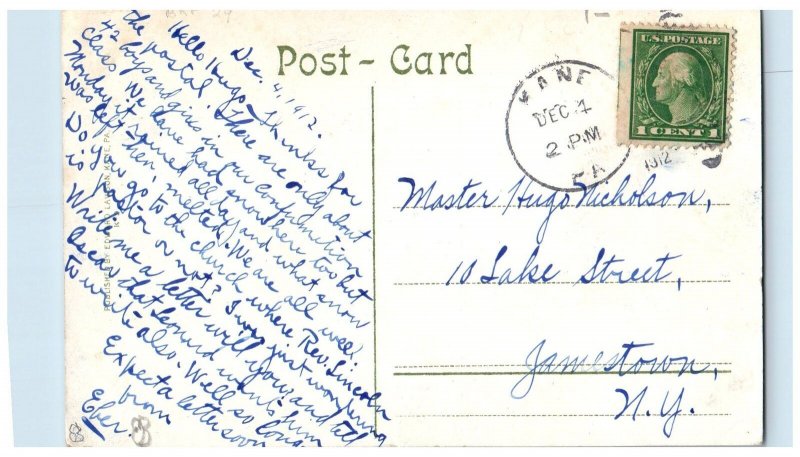 Post-Card
Dec. 4, 1912.
Hello Hugo- Thanks for
the postal. There are only about
42 boys and girls in our confirmation
class. We have had snow here too but
Monday it rained all day and what snow
was left then, melted. We are all well.
Do you go to the church where Rev. Lincoln
is Pastor or not? I was just wondering
Write me a letter will you, and tell
Oscar that Leonard wants him
to write also. Well so long
Expect a letter soon
from
Eber.
KANE
DEC 4
2 PM
PA
1912
U.S. POSTAGE
1 CENT 1
Master Hugo Nicholson,
10 Lake Street,
Jamestown,
N.Y.